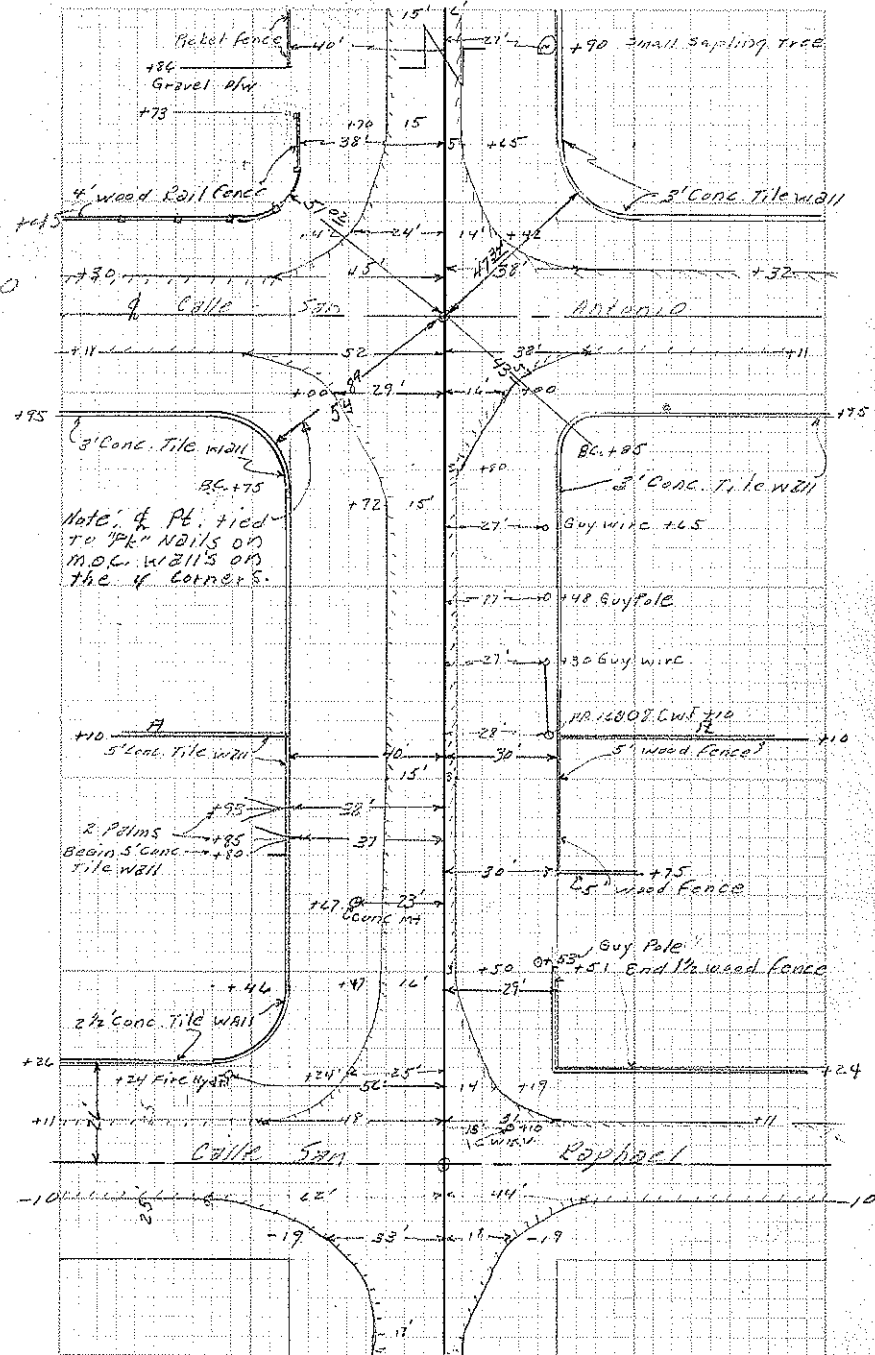 15' 6'
Picket fence
40' 27' +90 Small Sapling Tree
+86
Gravel D/W
+73
+70 15 5 +65
38'
4' Wood Rail fence
3' Conc. Tile Wall
+45
51.02
+42 24' 14' +42
47.34
+30 45' 38' +32
℄ Calle San Antonio
+11 52 38' +11
43.51
+00 29' 16' +00
+95 +95
3' Conc. Tile Wall
BC. +85
BC. +75
3' Conc. Tile Wall
+80
+72 15'
Note: ℄ Pt. tied
to "PK" Nails on
M.O.C. Walls on
the 4 Corners.
27' Guy wire +65
27' +48 Guy Pole
27' +30 Guy wire
28' +10
+10 +10
5' Conc. Tile Wall
5' Wood Fence
40' 30'
15'
+93 38'
2 Palms
+85 37
Begin 5' Conc. +80
Tile Wall
30' +75
5' Wood Fence
+67 23'
Conc. Mt
Guy Pole
+53
+50 +51 End 1½ Wood Fence
29'
+46 +47 16'
2½' Conc. Tile Wall
+26 +24' 25' +24
+24 Fire Hydt 56 14 +19
26'
+11 48 31 +11
15' +10
Calle San Raphael
-10 62' 44' -10
25
-19 33' 18 -19
17'